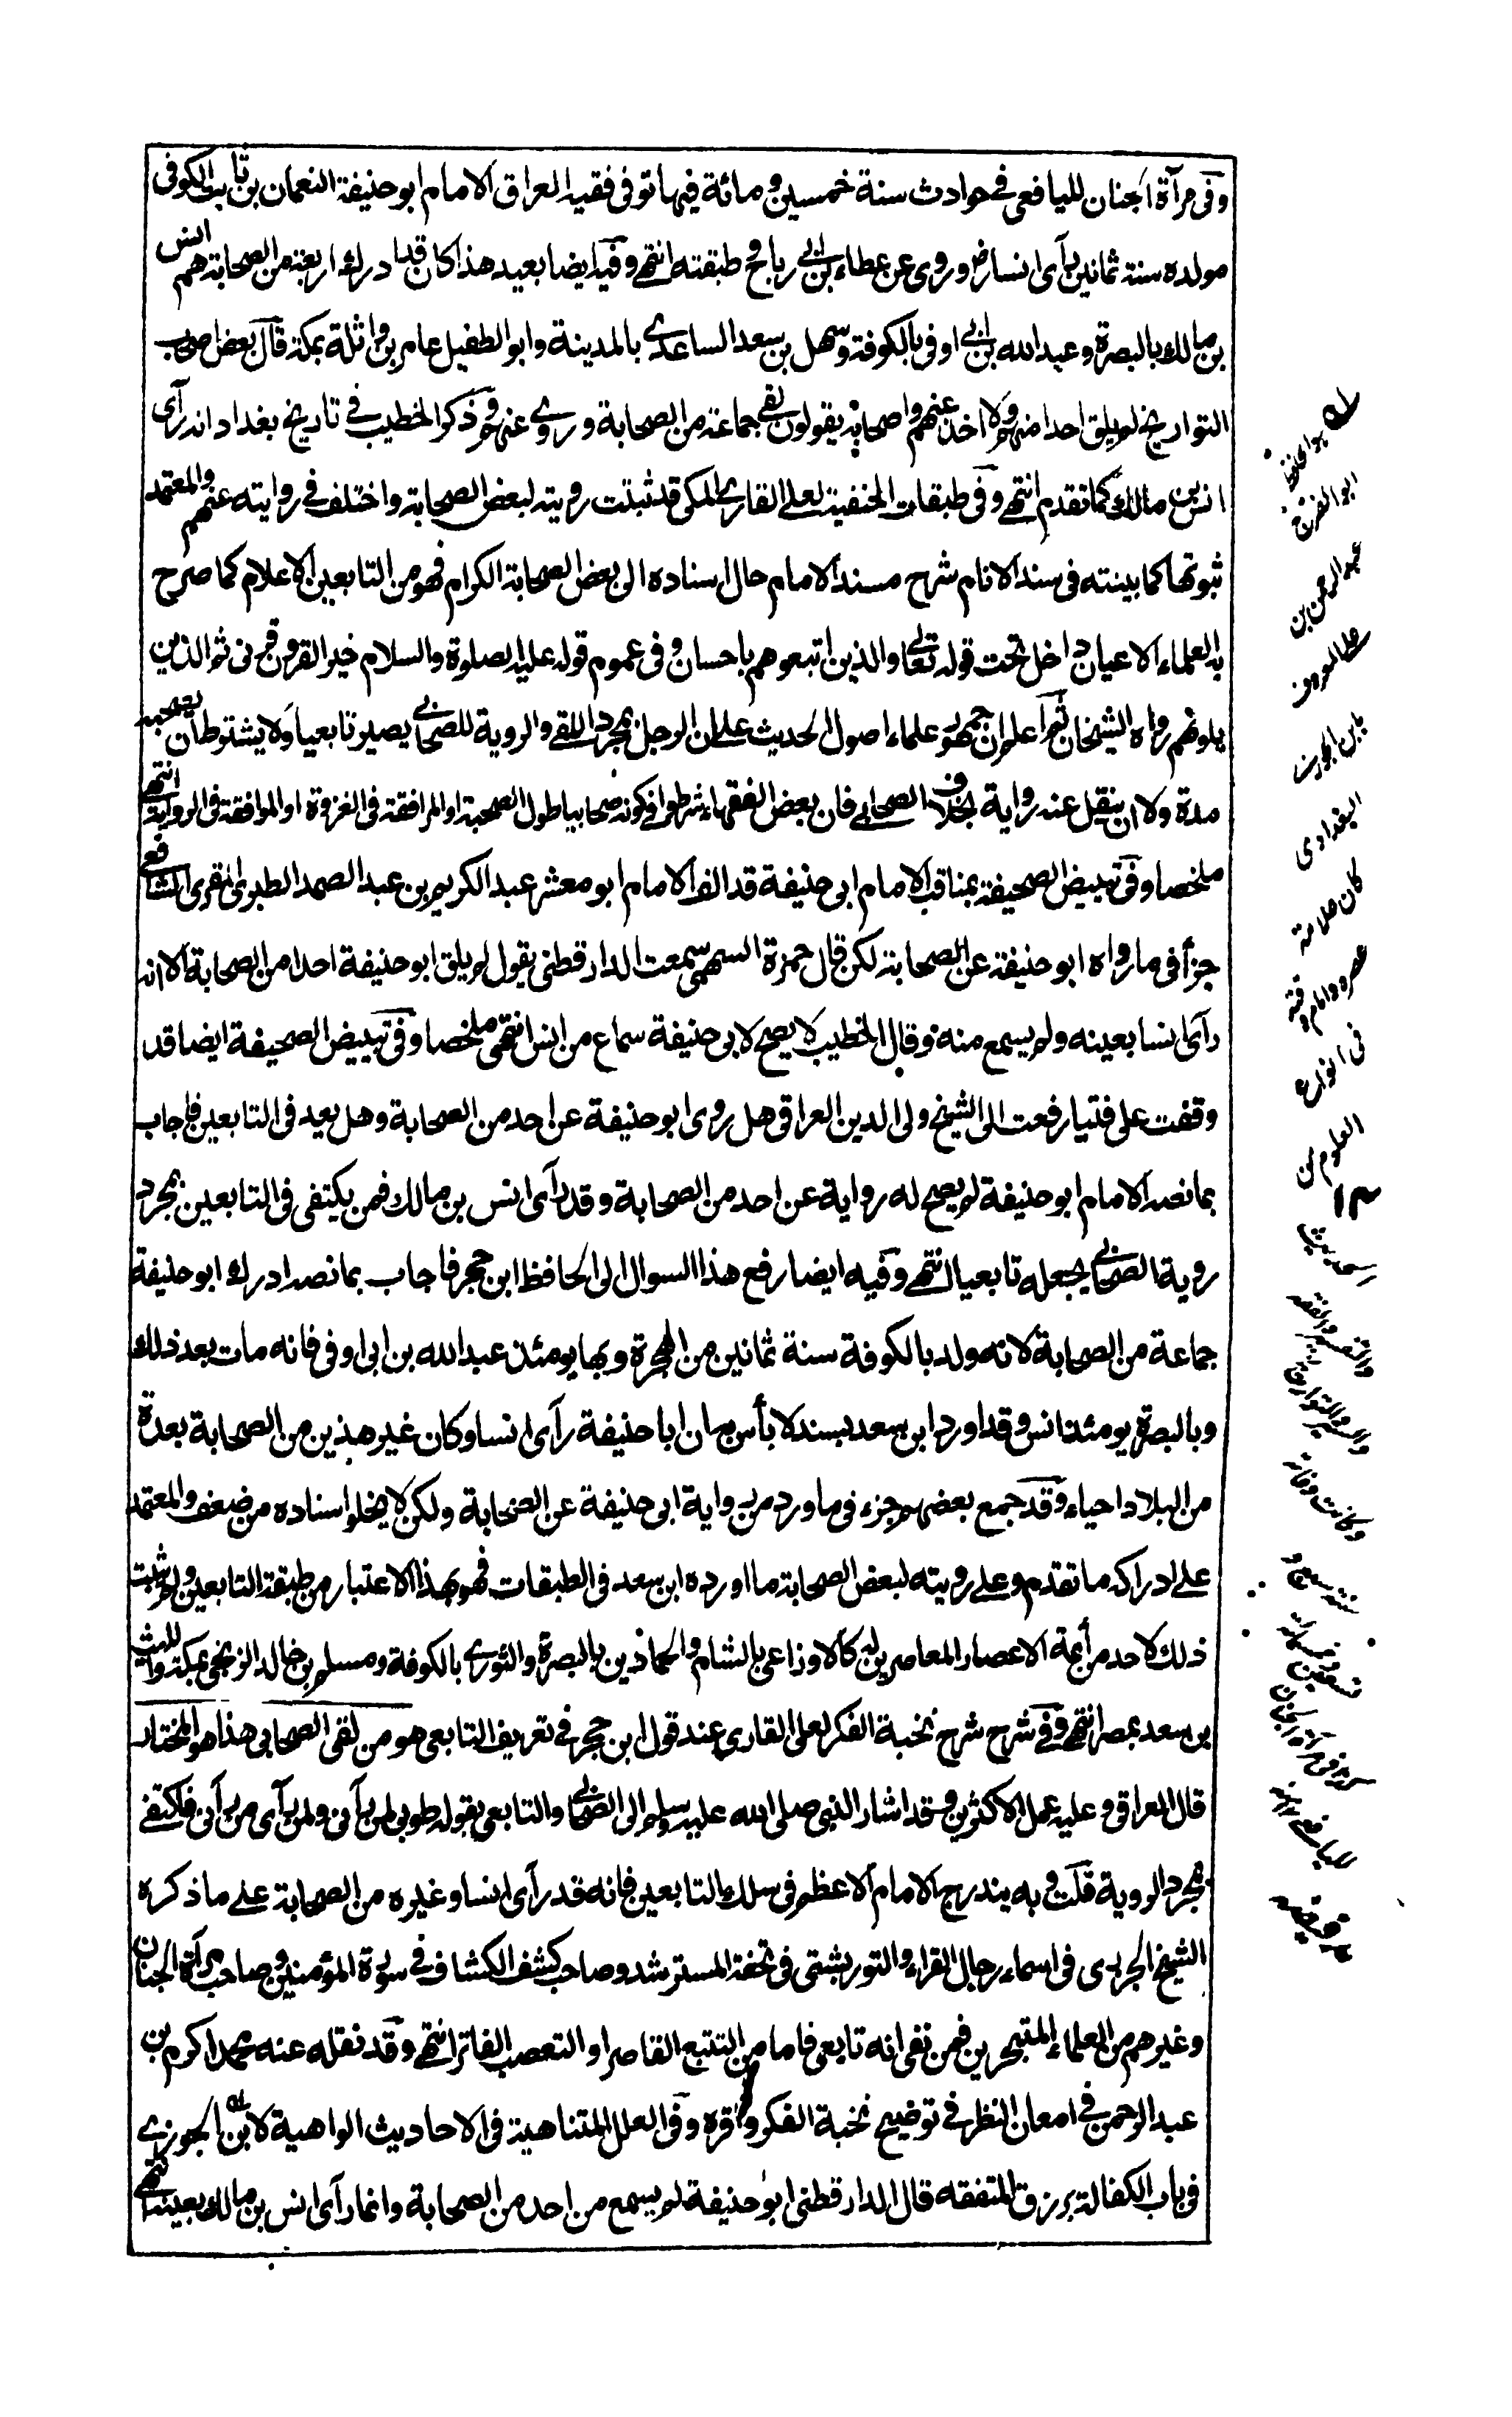 وفى مرآة الجنان لليافعي في حوادث سنة خمسين ومائة فيها توفى فقيه العراق الامام ابو حنيفة النعمان بن ثابت الكوفى
مولده سنة ثمانين رآى انسا رض وروى عن عطاء بن ابي رباح وطبقته انتهى وفيه ايضا بعيد هذا كان قد ادرك اربعة من الصحابة هم انس
بن مالك بالبصرة وعبد الله بن ابي اوفى بالكوفة وسهل بن سعد الساعدي بالمدينة وابو الطفيل عامر بن واثلة بمكة قال بعض اصحاب
التواريخ لم يلق احدا منهم ولا اخذ عنهم واصحابه يقولون لقى جماعة من الصحابة وروى عنهم وذكر الخطيب في تاريخ بغداد انه رآى
انس بن مالك كما تقدم انتهى وفى طبقات الحنفية لعلي القاري المكى قد ثبتت رويته لبعض الصحابة واختلف في روايته عنهم والمعتمد
ثبوتها كما بينته فى سند الانام شرح مسند الامام حال اسناده الى بعض الصحابة الكرام فهو من التابعين الاعلام كما صرح
به العلماء الاعيان داخل تحت قوله تعالى والذين اتبعوهم باحسان وفى عموم قوله عليه الصلوة والسلام خير القرون قرنى ثم الذين
يلونهم رواه الشيخان ثم اعلم ان جمهور علماء اصول الحديث على ان الرجل بمجرد اللقى والروية للصحابي يصير تابعيا ولا يشترط ان يصحبه
مدة ولا ان ينقل عنه رواية بخلاف الصحابي فان بعض الفقهاء شرطوا في كونه صحابيا طول الصحبة او المرافقة فى الغزوة او الموافقة فى الرواية انتهى
ملخصا وفى تبييض الصحيفة بمناقب الامام ابى حنيفة قد الف الامام ابو معشر عبد الكريم بن عبد الصمد الطبرى المقرى الشافعي
جزأ فى ما رواه ابو حنيفة عن الصحابة لكن قال حمزة السهمى سمعت الدارقطنى يقول لم يلق ابو حنيفة احدا من الصحابة الا انه
رآى انسا بعينه ولم يسمع منه وقال الخطيب لا يصح لابى حنيفة سماع من انس انتهى ملخصا وفى تبييض الصحيفة ايضا قد
وقفت على فتيا رفعت الى الشيخ ولى الدين العراقى هل روى ابو حنيفة عن احد من الصحابة وهل يعد فى التابعين فاجاب
بما نصه الامام ابو حنيفة لم يصح له رواية عن احد من الصحابة وقد رآى انس بن مالك فمن يكتفى فى التابعين بمجرد
روية الصحابي يجعله تابعيا انتهى وفيه ايضا رفع هذا السوال الى الحافظ ابن حجر فاجاب بما نصه ادرك ابو حنيفة
جماعة من الصحابة لانه مولد بالكوفة سنة ثمانين من الهجرة وبها يومئذ عبد الله بن ابى اوفى فانه مات بعد ذلك
وبالبصرة يومئذ انس وقد اورد ابن سعد بسند لا بأس به ان ابا حنيفة رآى انسا وكان غير هذين من الصحابة بعدة
من البلاد احياء وقد جمع بعضهم جزء فى ما ورد من رواية ابى حنيفة عن الصحابة ولكن لا يخلو اسناده من ضعف والمعتمد
على ادراكه ما تقدم وعلى رويته لبعض الصحابة ما اورده ابن سعد فى الطبقات فهو بهذا الاعتبار من طبقة التابعين ولم يثبت
ذلك لاحد من أئمة الاعصار المعاصرين له كالاوزاعى بالشام والحمادين بالبصرة والثوري بالكوفة ومسلم بن خالد الزنجى بمكة والليث
بن سعد بمصر انتهى وفي شرح شرح نخبة الفكر لعلى القارى عند قول ابن حجر في تعريف التابعى هو من لقى الصحابى هذا هو المختار
قال العراقى وعليه عمل الاكثرين وقد اشار النبى صلى الله عليه وسلم الى الصحابي والتابعى بقوله طوبى لمن رآنى ولمن رآى من رآنى فاكتفى
بمجرد الروية قلت وبه يندرج الامام الاعظم فى سلك التابعين فانه قد رآى انسا وغيره من الصحابة على ما ذكره
الشيخ الجزرى فى اسماء رجال القراء والتوربشتى فى تحفة المسترشد وصاحب كشف الكشاف في سورة المؤمنين وصاحب مرآة الجنان
وغيرهم من العلماء المتبحرين فمن نفى انه تابعى فاما من التتبع القاصر او التعصب الفاتر انتهى وقد نقله عنه محمد اكرم بن
عبد الرحمن في امعان النظر في توضيح نخبة الفكر واقره وفى العلل المتناهية فى الاحاديث الواهية لابن الجوزي
فى باب الكفالة برزق المتفقه قال الدارقطنى ابو حنيفة لم يسمع من احد من الصحابة وانما رآى انس بن مالك بعينه انتهى
هو الحافظ
ابو الفرج
عبد الرحمن بن
على المعروف
بابن الجوزى
البغدادى
كان علامة
عصره وامام وقته
فى انواع
العلوم من
الحديث
والتفسير والفقه
والسير والتواريخ
وكانت وفاته